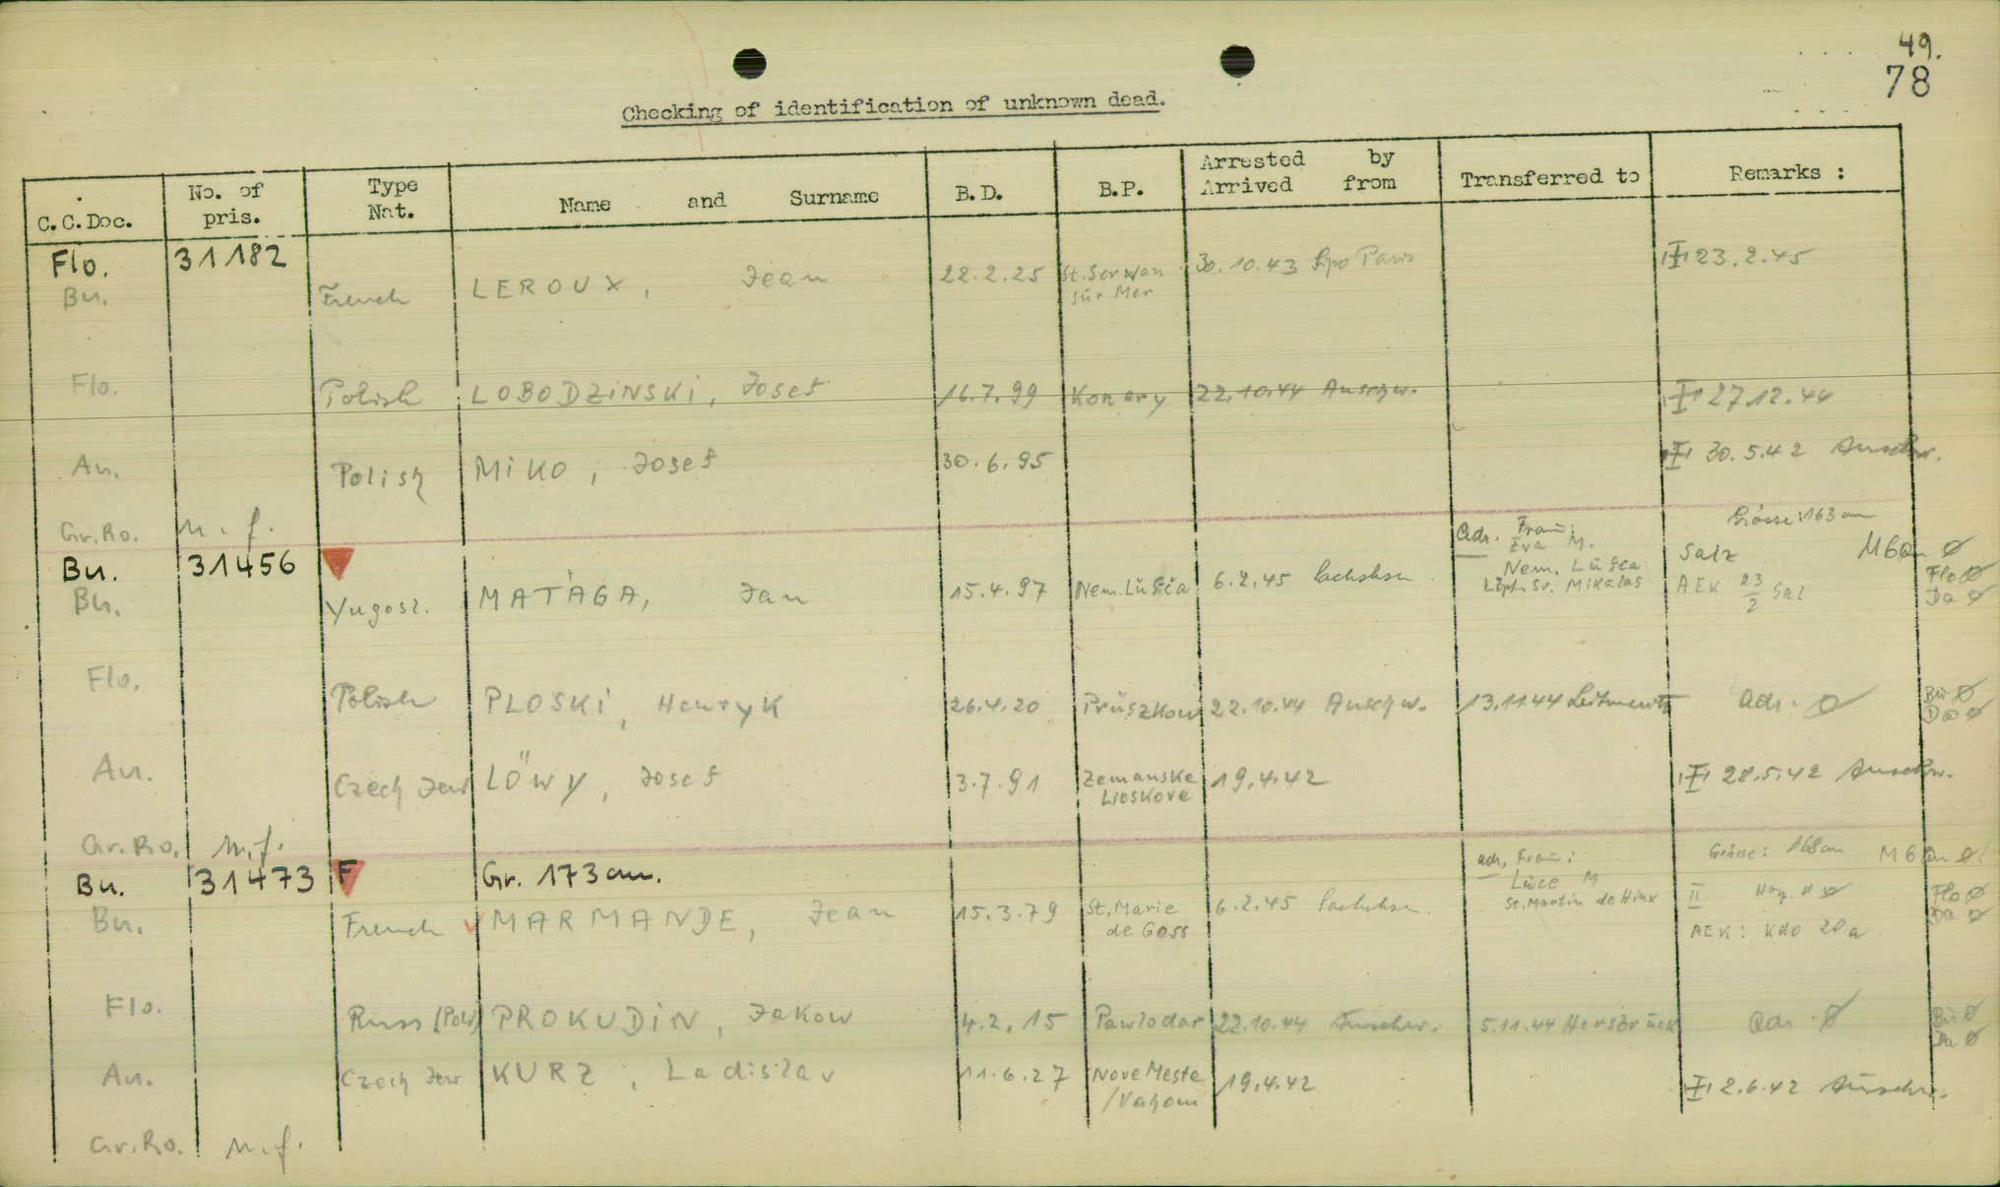 49.
78
Checking of identification of unknown dead.
C.C.Doc. No. of pris. Type Nat. Name and Surname B.D. B.P. Arrested by Arrived from Transferred to Remarks :
Flo. 31182
Bu. French LEROUX, Jean 22.2.25 St. Servan sur Mer 30.10.43 Sipo Paris 23.2.45
Flo. Polish LOBODZiNSKi, Josef 16.7.99 Konary 22.10.44 Auschw. 27.12.44
An. Polish MiKO, Josef 30.6.95 30.5.42 Auschw.
Gr.Ro. n.f.
Adr. Frau: Eva M. Grösse: 163 cm
Bu. 31456 Nem. Lušča Salz
Bu. Yugosl. MATAGA, Jan 15.4.97 Nem. Lušča 6.2.45 Sachshsn. Lipt. Sv. Mikulas AEK 23/2 Sal Flo Ø Da Ø
Flo. Polish PLOSKi, Henryk 26.4.20 Prüszkow 22.10.44 Auschw. 13.11.44 Leitmeritz Adr. Ø Bu Ø Da Ø
An. Czech Jew LÖWY, Josef 3.7.91 Zemanske Lieskove 19.4.42 28.5.42 Auschw.
Gr.Ro. n.f.
adr. Frau: Luce M Grösse: 168 cm
Bu. 31473 F Gr. 173 cm. St. Martin de Hinx II
Bu. French MARMANDE, Jean 15.3.79 St. Marie de Goss 6.2.45 Sachshsn. AEK: Kdo 20a Flo Ø Da Ø
Flo. Russ (Pol) PROKUDiN, Jakow 4.2.15 Pawlodar 22.10.44 Auschw. 5.11.44 Hersbrück Adr. Ø Bu Ø Da Ø
An. Czech Jew KURZ, Ladislav 11.6.27 Nove Meste /Vahom 19.4.42 2.6.42 Auschw.
Gr.Ro. n.f.